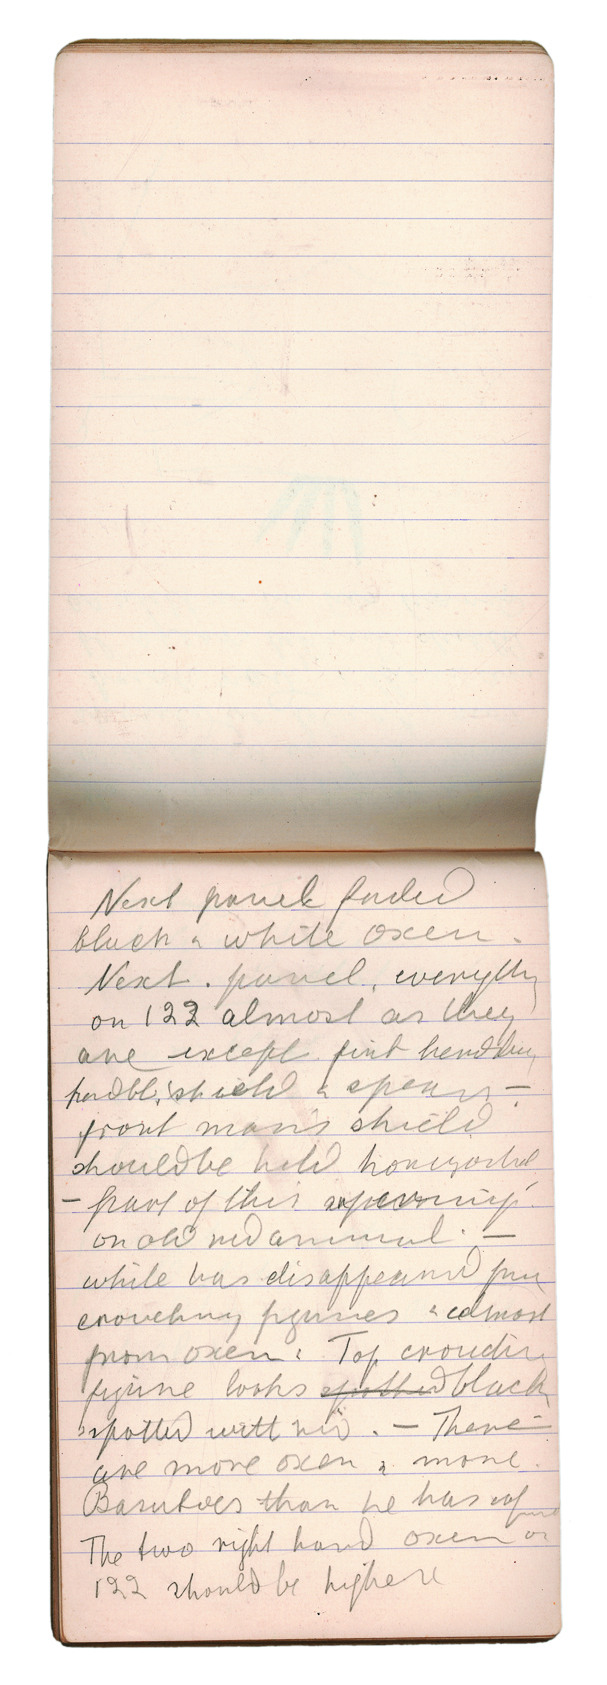 Next panel faded
black & white oxen.
Next panel, everything
on 122 almost as they
are except first
shield & spear —
front man's shield
should be held horizontal
— part of this superimp.
on old red animal. —
white has disappeared from
crouching figures & almost
from oxen. Top crouching
figure looks spotted black
spotted with red. — There
are more oxen & more
Basutoes than he has
The two right hand oxen on
122 should be higher